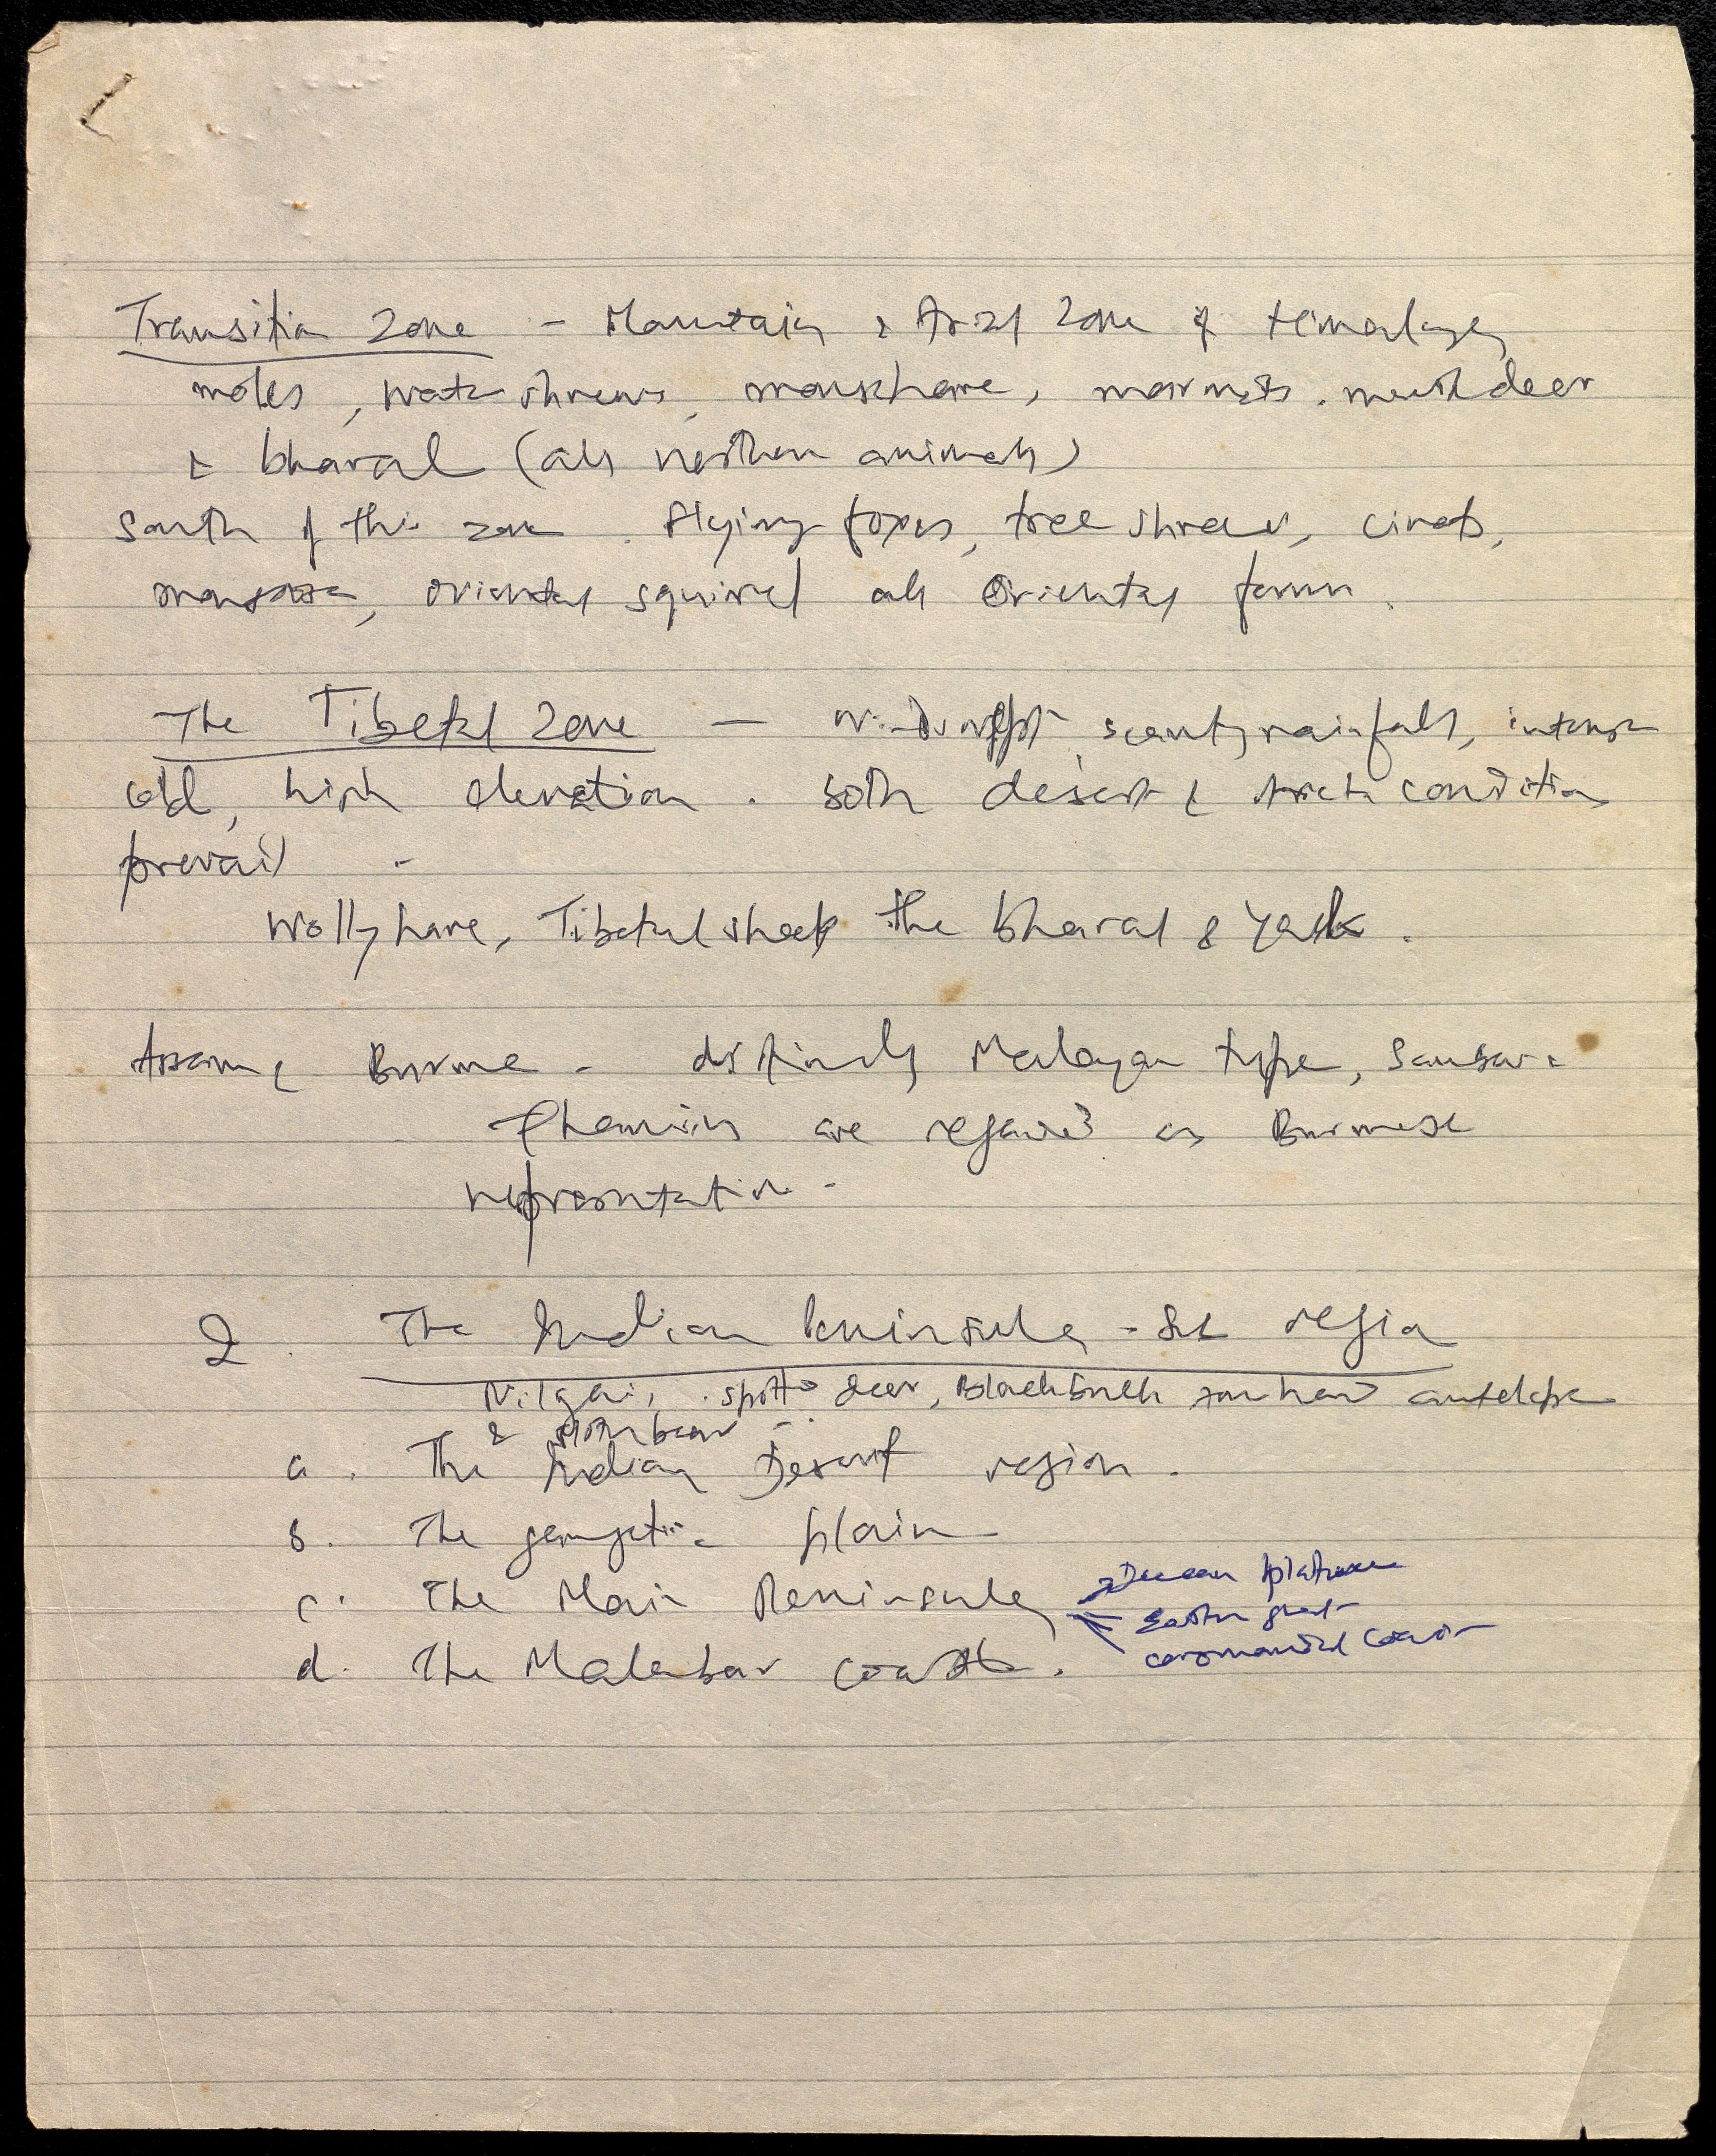 Transition Zone - Mountain & Arid Zone of Himalayas
moles, water shrews, mousehare, marmots, musk deer
& bharal (all northern animals)
South of this zone. flying foxes, tree shrews, civets,
mongoose, oriental squirrel all Oriental form.
The Tibetal Zone — windswept scanty rainfall, intense
cold, high elevation. both desert & Arctic condition
prevail.
Wolly hare, Tibetal sheep the bharal & Yak.
Assam & Burma - distinctly Malayan type, Sambar &
Thamins are regarded as Burmese
representation -
2. The Indian Peninsula - Sub region
Nilgai, spotted deer, Blackbuck four horned antelope
& sloth bear -
a. The Indian Desert region.
b. The gangetic plain
c. The Main Peninsula
Deccan plateau
Eastern ghat
coromandel coast
d. The Malabar coast.